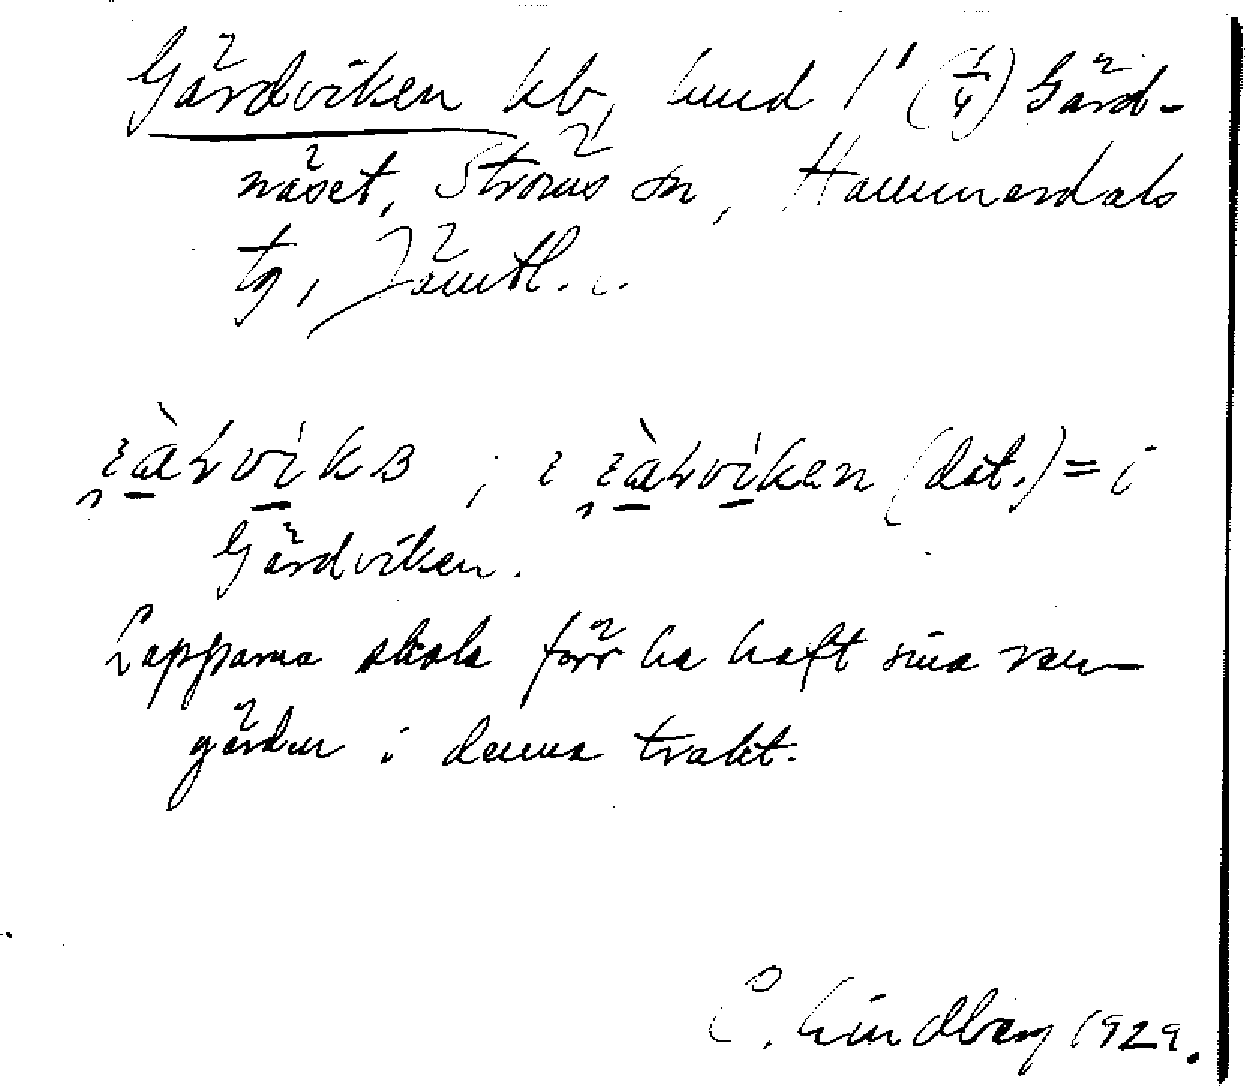 Gärdviken kb, hmd 1¹ (1/4) Gärd-
näset, Ströms sn, Hammerdals
tg, Jämtl. l.
(dat.) = i
Gärdviken.
Lapparna skola förr ha haft sina ren-
gärdor i denna trakt.
C. Lindberg 1929.